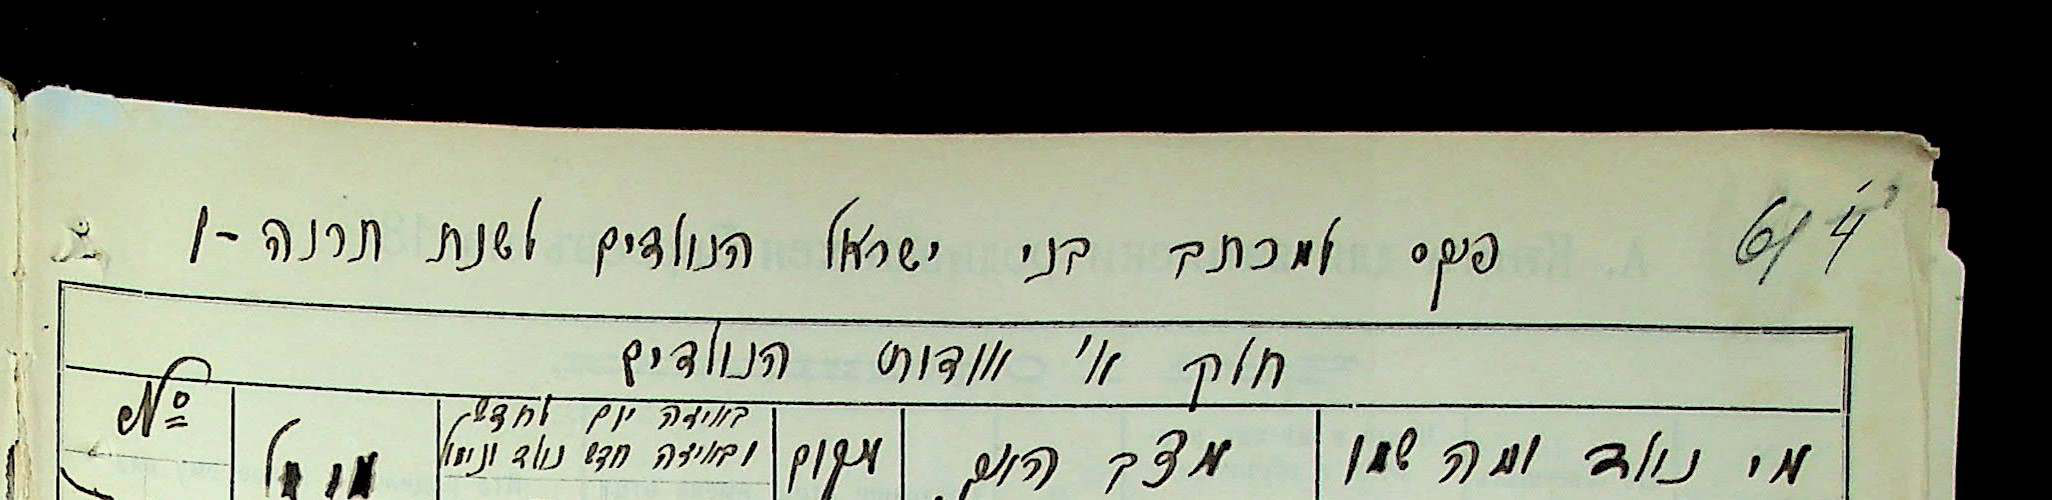 פנקס למכתב בני ישראל הנולדים לשנת תרנה - 1
חלק א' אודות הנולדים
מי נולד ומה שמו
מצב הורים
מקום
באיזה יום לחדש
ובאיזה חדש נולד ונימול
מוהל
№